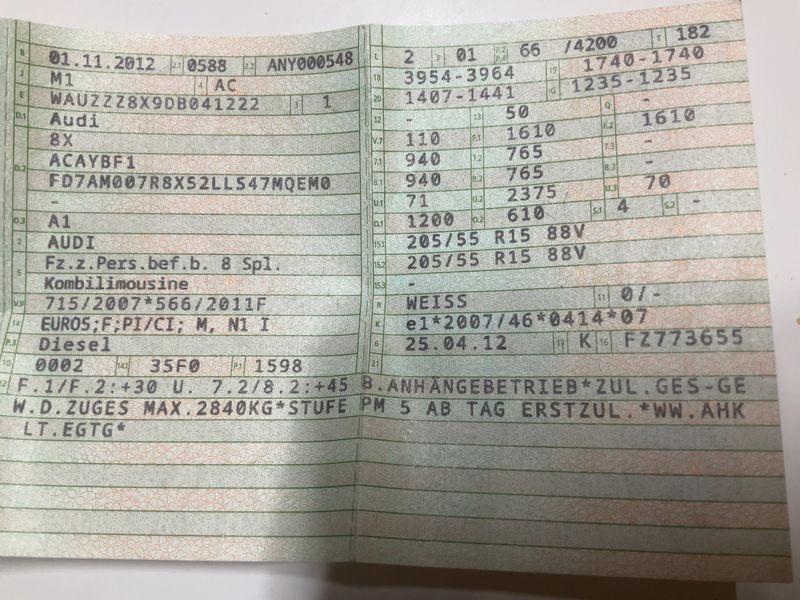 B 01.11.2012 2.1 0588 2.2 ANY000548
J M1 4 AC
E WAUZZZ8X9DB041222 3 1
D.1 Audi
8X
D.2 ACAYBF1
FD7AM007R8X52LLS47MQEM0
-
D.3 A1
2 AUDI
5 Fz.z.Pers.bef.b. 8 Spl.
Kombilimousine
V.9 715/2007*566/2011F
14 EURO5;F;PI/CI; M, N1 I
P.3 Diesel
10 0002 14.1 35F0 P.1 1598
L 2 9 01 P.2 P.4 66 /4200 T 182
18 3954-3964 19 1740-1740
20 1407-1441 G 1235-1235
12 - 13 50 Q -
V.7 110 F.1 1610 F.2 1610
7.1 940 7.2 765 7.3 -
8.1 940 8.2 765 8.3 -
U.1 71 U.2 2375 U.3 70
O.1 1200 O.2 610 S.1 4 S.2 -
15.1 205/55 R15 88V
15.2 205/55 R15 88V
15.3 -
R WEISS 11 0/-
K e1*2007/46*0414*07
6 25.04.12 17 K 16 FZ773655
21
22 F.1/F.2:+30 U. 7.2/8.2:+45 B.ANHÄNGEBETRIEB*ZUL.GES-GE
W.D.ZUGES MAX.2840KG*STUFE PM 5 AB TAG ERSTZUL.*WW.AHK
LT.EGTG*